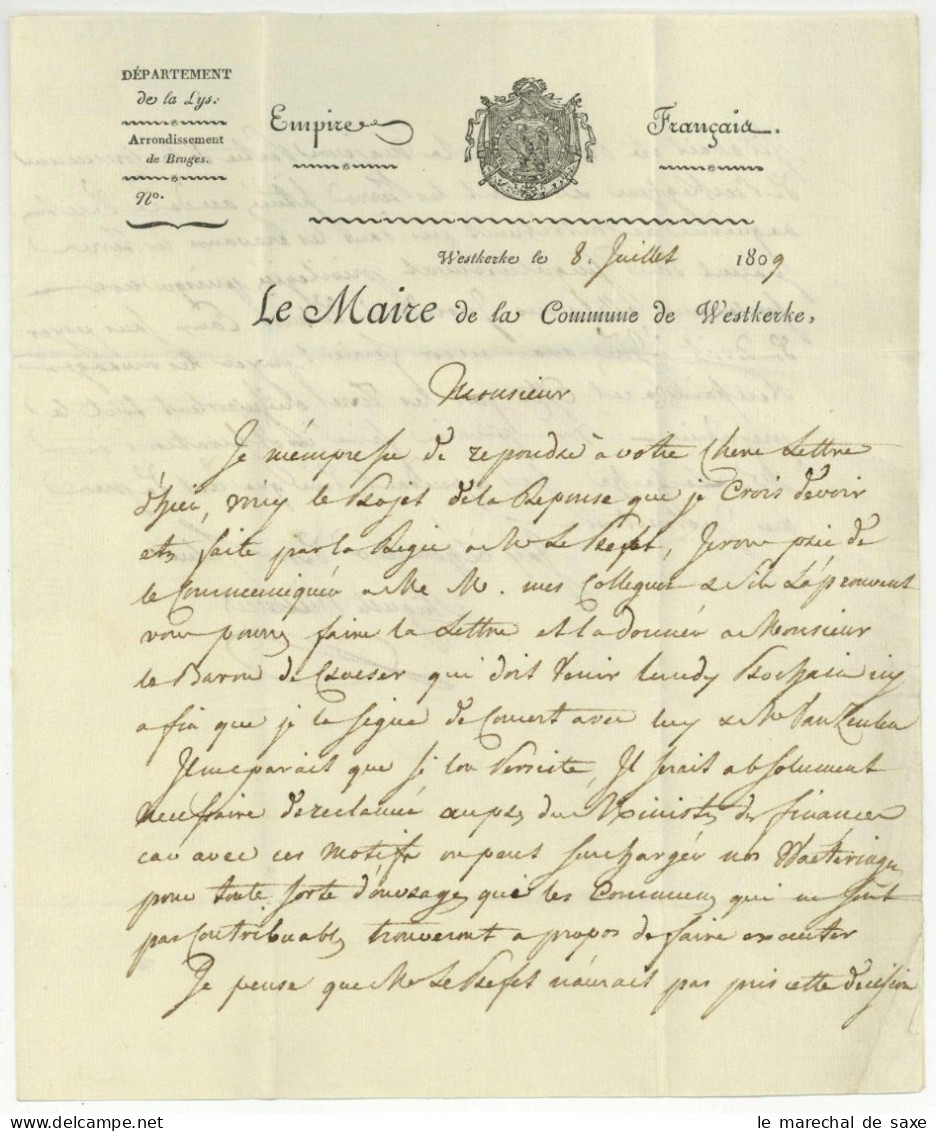 DÉPARTEMENT
de la Lys.
Arrondissement
de Bruges.
N.o
Empire Français.
Westkerke le 8. Juillet 1809
Le Maire de la Commune de Westkerke,
Monsieur
Je m'empresse de repondre a votre Chere Lettre
d'hier, voicy le Projet de la Reponse que je Crois devoir
etre faite par la Regie a Mr Le Prefet, Je vous prie de
le Communiquer a Me M. mes Collegues & S'ils L'aprouvent
vous pourez faire la Lettre et la donner a Monsieur
le Baron de Croeser qui doit venir lundy Prochain icy
afin que je la signe de Concert avec luy & Mr Van Zuylen
Il me parait que si l'on Persiste, Il serait absolument
necessaire de reclamer aupres du Ministre des finances
car avec ces motifs on peut surcharger nos Waeteringues
pour toute sorte d'ouvrages que les Communes qui ne sont
pas Contribuables trouveront a propos de faire executer
Je pense que Mr Le Prefet n'aurait pas pris cette decision
le marechal de saxe